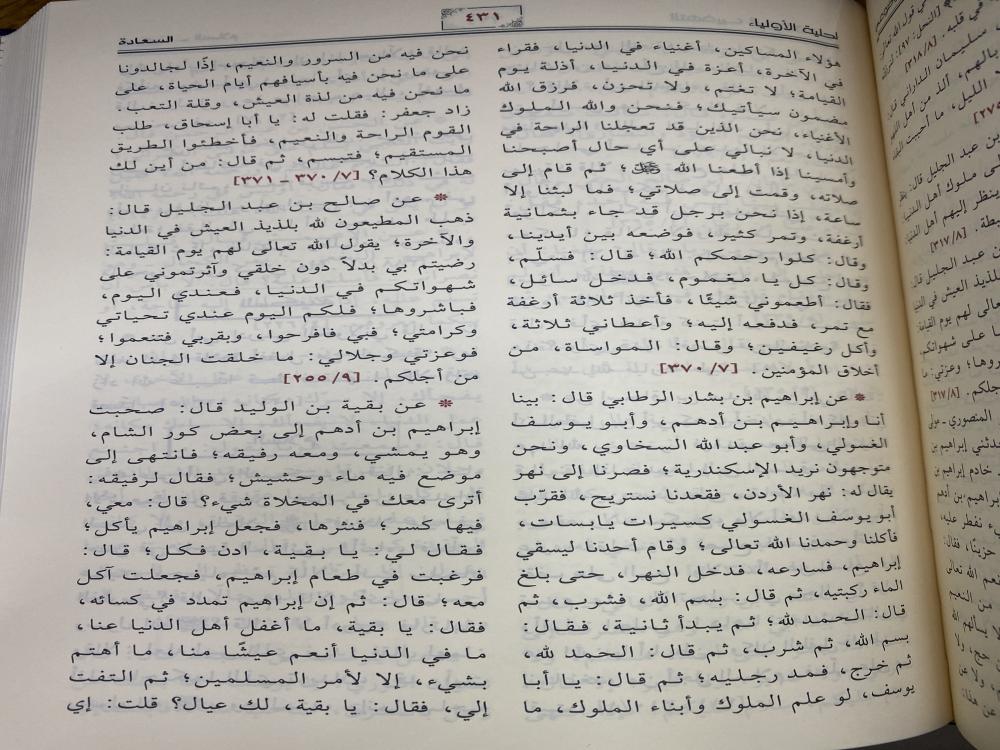 حلية الأولياء
٤٣١
السعادة
هؤلاء المساكين، أغنياء في الدنيا، فقراء
في الآخرة، أعزة في الدنيا، أذلة يوم
القيامة؛ لا تغتم، ولا تحزن، فرزق الله
مضمون سيأتيك؛ فنحن والله الملوك
الأغنياء، نحن الذين قد تعجلنا الراحة في
الدنيا، لا نبالي على أي حال أصبحنا
وأمسينا إذا أطعنا الله ﷿؛ ثم قام إلى
صلاته، وقمت إلى صلاتي؛ فما لبثنا إلا
ساعة، إذا نحن برجل قد جاء بثمانية
أرغفة، وتمر كثير، فوضعه بين أيدينا،
وقال: كلوا رحمكم الله؛ قال: فسلّم،
وقال: كل يا مغموم، فدخل سائل،
فقال: أطعموني شيئًا، فأخذ ثلاثة أرغفة
مع تمر، فدفعه إليه؛ وأعطاني ثلاثة،
وأكل رغيفين؛ وقال: المواساة، من
أخلاق المؤمنين. [٣٧٠/٧]
* عن إبراهيم بن بشار الرطابي قال: بينا
أنا وإبراهيم بن أدهم، وأبو يوسف
الغسولي، وأبو عبد الله السخاوي، ونحن
متوجهون نريد الإسكندرية؛ فصرنا إلى نهر
يقال له: نهر الأردن، فقعدنا نستريح، فقرّب
أبو يوسف الغسولي كسيرات يابسات،
فأكلنا وحمدنا الله تعالى؛ وقام أحدنا ليسقي
إبراهيم، فسارعه، فدخل النهر، حتى بلغ
الماء ركبتيه، ثم قال: بسم الله، فشرب، ثم
قال: الحمد لله؛ ثم يبدأ ثانية، فقال:
بسم الله، ثم شرب، ثم قال: الحمد لله،
ثم خرج، فمد رجليه؛ ثم قال: يا أبا
يوسف، لو علم الملوك وأبناء الملوك، ما
نحن فيه من السرور والنعيم، إذًا لجالدونا
على ما نحن فيه بأسيافهم أيام الحياة، على
ما نحن فيه من لذة العيش، وقلة التعب.
زاد جعفر: فقلت له: يا أبا إسحاق، طلب
القوم الراحة والنعيم، فأخطئوا الطريق
المستقيم؛ فتبسم، ثم قال: من أين لك
هذا الكلام؟ [٣٧٠/٧ - ٣٧١]
* عن صالح بن عبد الجليل قال:
ذهب المطيعون لله بلذيذ العيش في الدنيا
والآخرة؛ يقول الله تعالى لهم يوم القيامة:
رضيتم بي بدلاً دون خلقي وآثرتموني على
شهواتكم في الدنيا، فعندي اليوم،
فباشروها؛ فلكم اليوم عندي تحياتي
وكرامتي؛ فبي فافرحوا، وبقربي فتنعموا؛
فوعزتي وجلالي: ما خلقت الجنان إلا
من أجلكم. [٢٥٥/٩]
* عن بقية بن الوليد قال: صحبت
إبراهيم بن أدهم إلى بعض كور الشام،
وهو يمشي، ومعه رفيقه؛ فانتهى إلى
موضع فيه ماء وحشيش؛ فقال لرفيقه:
أترى معك في المخلاة شيء؟ قال: معي،
فيها كسر؛ فنثرها، فجعل إبراهيم يأكل؛
فقال لي: يا بقية، ادن فكل؛ قال:
فرغبت في طعام إبراهيم، فجعلت آكل
معه؛ قال: ثم إن إبراهيم تمدد في كسائه،
فقال: يا بقية، ما أغفل أهل الدنيا عنا،
ما في الدنيا أنعم عيشًا منا، ما أهتم
بشيء، إلا لأمر المسلمين؛ ثم التفت
إلي، فقال: يا بقية، لك عيال؟ قلت: إي